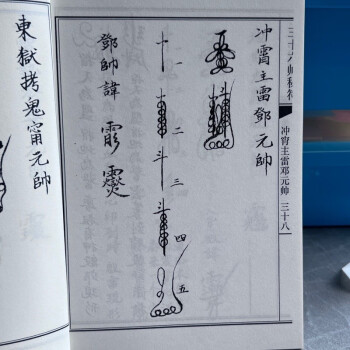 三十六帅秘符
冲宵主雷邓元帅 三十八
冲霄主雷鄧元帥
一
二
三
四
五
鄧帥諱
東獄拷鬼甯元帥